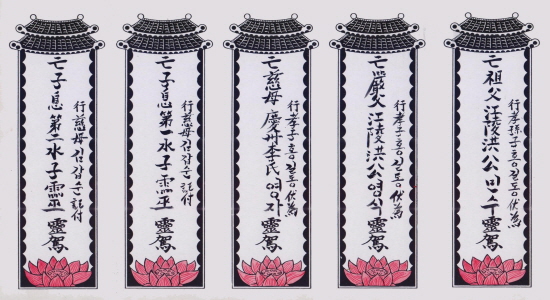 行孝孫子홍길동伏爲
亡祖父江陵洪公민수靈駕
行孝子홍길동伏爲
亡嚴父江陵洪公영식靈駕
行孝子홍길동伏爲
亡慈母慶州李氏영자靈駕
行慈母김갑순記付
亡子息第一水子靈 靈駕
行慈母김갑순記付
亡子息第二水子靈 靈駕